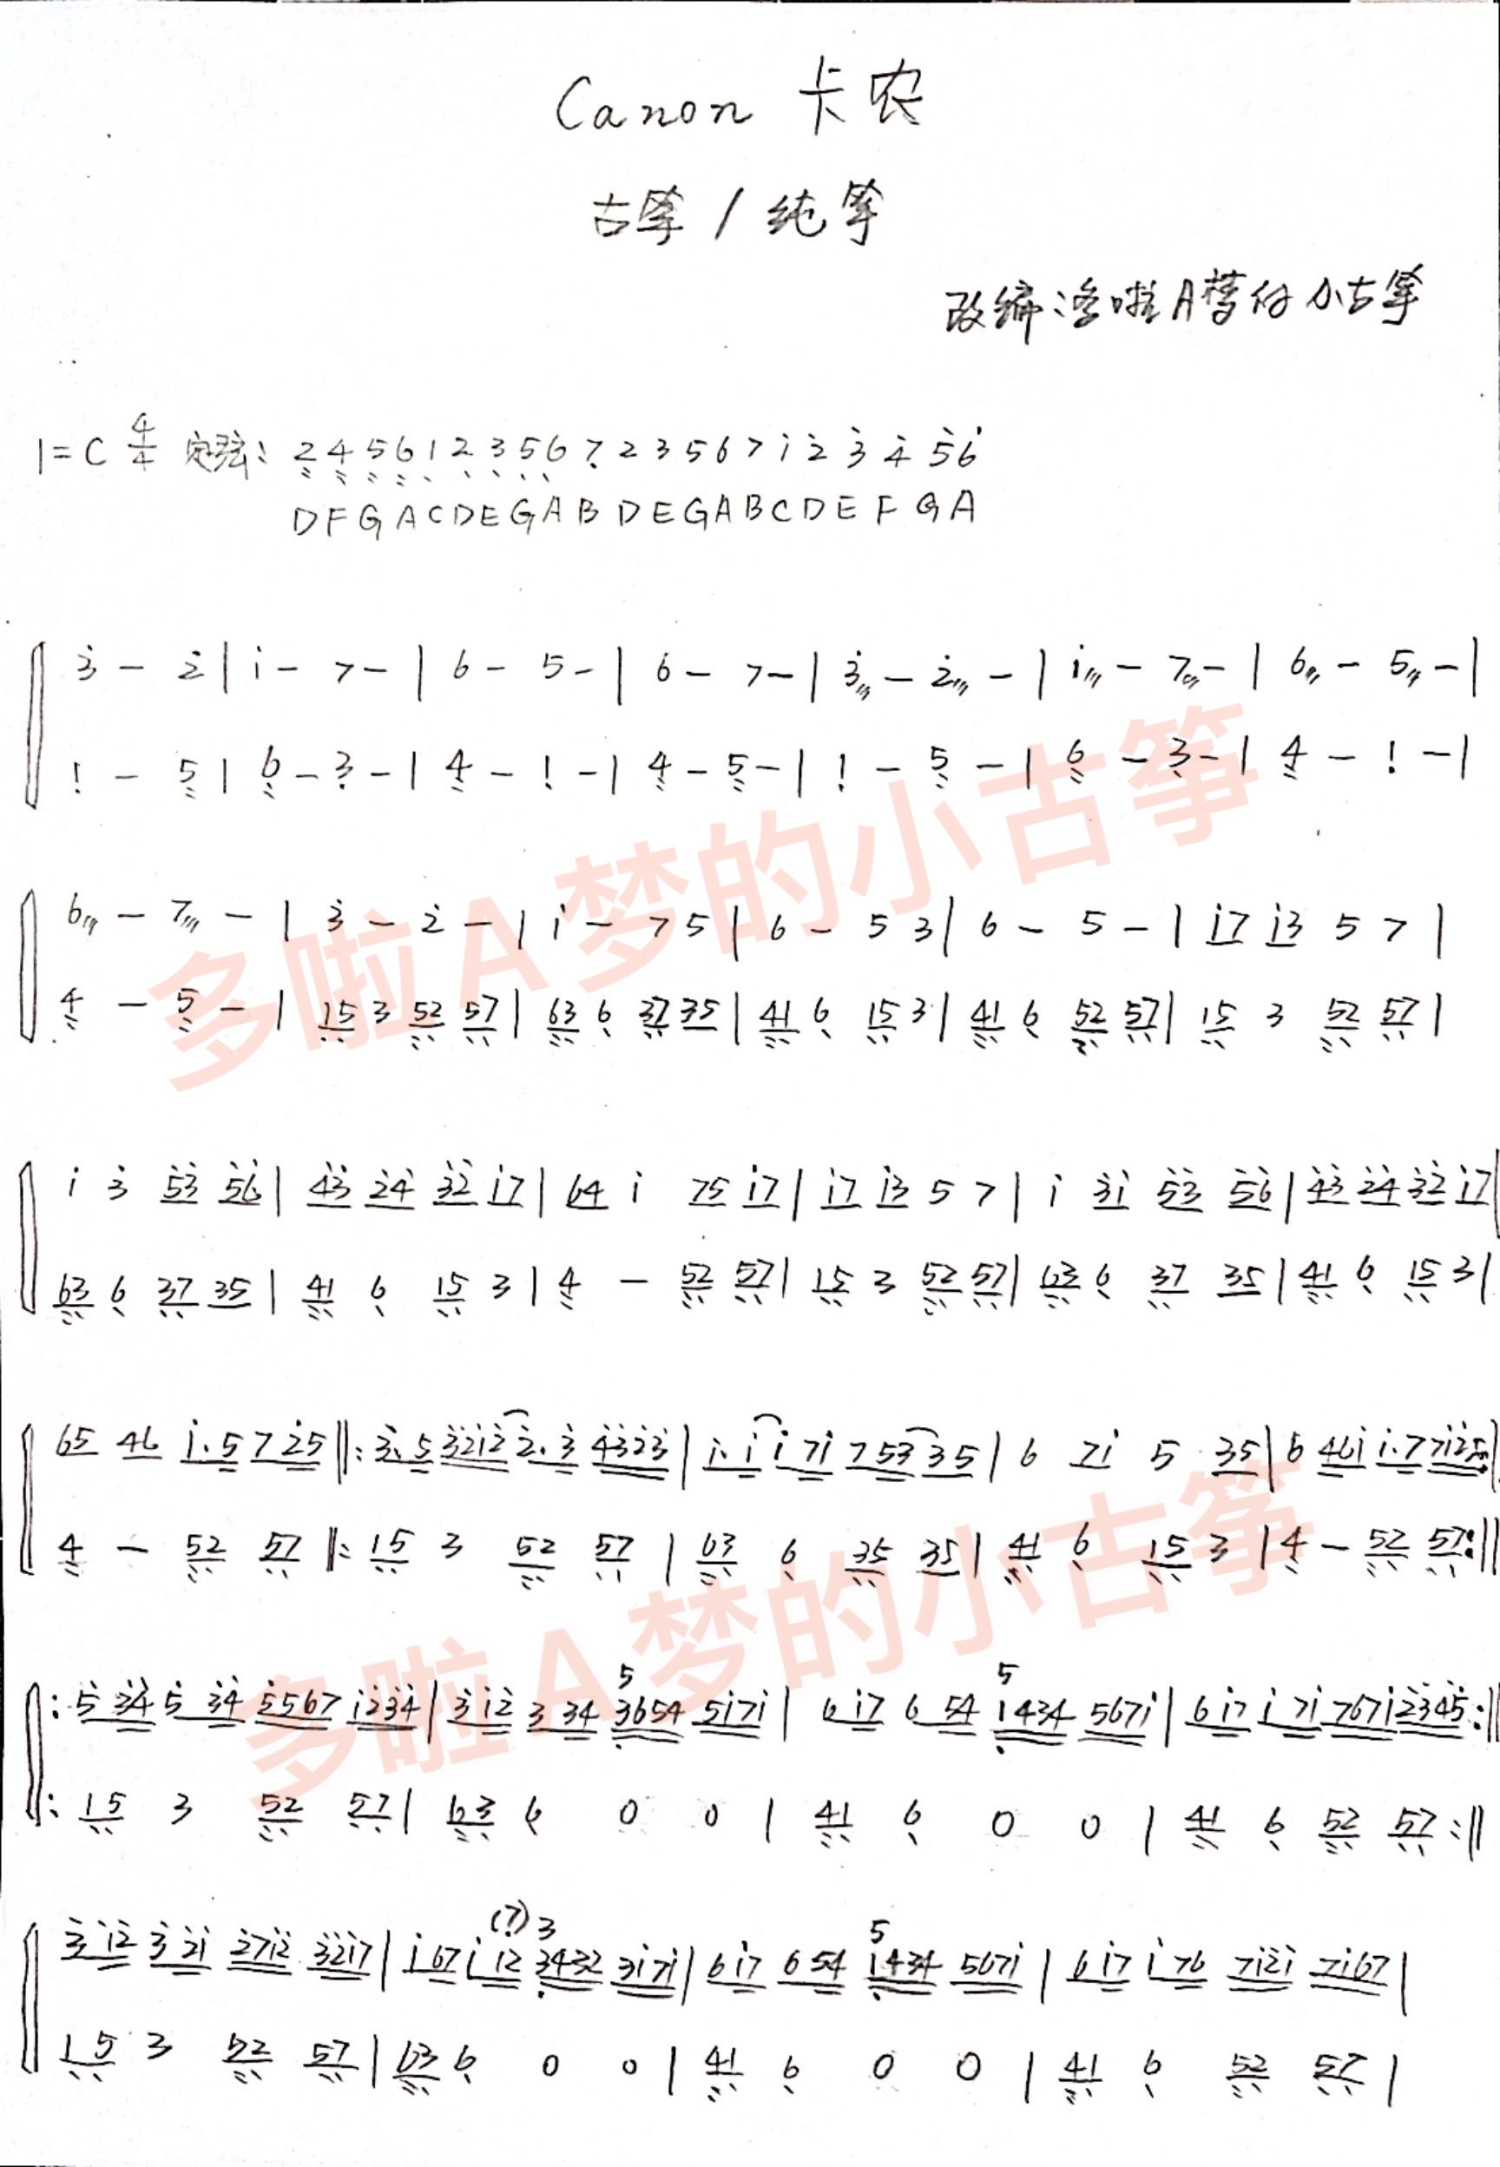 Canon 卡农
古筝 / 纯筝
改编:多啦A梦的小古筝
1=C 4/4 定弦: 2̤ 4̤ 5̤ 6̤ 1̣ 2̣ 3̣ 5̣ 6̣ 7̣ 2 3 5 6 7 i 2̇ 3̇ 4̇ 5̇ 6̇
D F G A C D E G A B D E G A B C D E F G A
3̇ – 2̇ | i – 7 – | 6 – 5 – | 6 – 7 – | 3̇〃 – 2̇〃 – | i〃 – 7〃 – | 6〃 – 5〃 – |
1̣ – 5̤ | 6̤ – 3̣ – | 4̤ – 1̣ – | 4̤ – 5̤ – | 1̣ – 5̤ – | 6̤ – 3̣ – | 4̤ – 1̣ – |
6〃 – 7〃 – | 3̇ – 2̇ – | i – 7 5 | 6 – 5 3 | 6 – 5 – | i7 i3 5 7 |
4 – 5 – | 15 3 52 57 | 63 6 37 35 | 41 6 15 3 | 41 6 52 57 | 15 3 52 57 |
i 3̇ 53 56 | 43 24 32 i7 | 64 i 75 i7 | i7 i3 5 7 | i 3i 53 56 | 43 24 32 i7
63 6 37 35 | 41 6 15 3 | 4 – 52 57 | 15 3 52 57 | 63 6 37 35 | 41 6 15 3 |
65 46 i.5 7 25 ‖: 3.5 3212 2.3 4323 | i.i i 7i 7 53 35 | 6 7i 5 35 | 6 46i i.7 7i25 :‖
4 – 52 57 ‖: 15 3 52 57 | 63 6 35 35 | 41 6 15 3 | 4 – 52 57 :‖
5 5
: 5 34 5 34 5567 i234 | 3 i2 3 34 3654 5i7i | 6 i7 6 54 1434 567i | 6 i7 i 7i 767i 2345 :‖
: 15 3 52 57 | 63 6 0 0 | 41 6 0 0 | 41 6 52 57 :‖
(7) 3 5
3 i2 3 2i 27i2 32i7 | i 67 i 12 3432 3i7i | 6 i7 6 54 1434 567i | 6 i7 i 76 7i2i 7i67 |
15 3 52 57 | 63 6 0 0 | 41 6 0 0 | 41 6 52 57 |
多啦A梦的小古筝
多啦A梦的小古筝